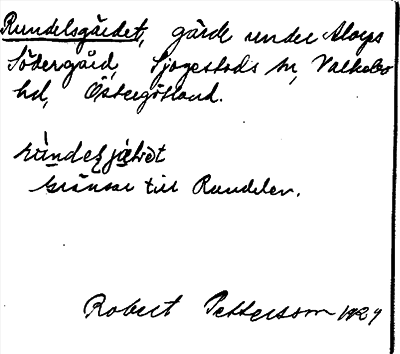 Rundelsgärdet, gärde under Alorps
Södergård, Sjögestads sn, Valkebo
hd, Östergötland.
Gränsar till Rundelen.
Robert Pettersson 1929